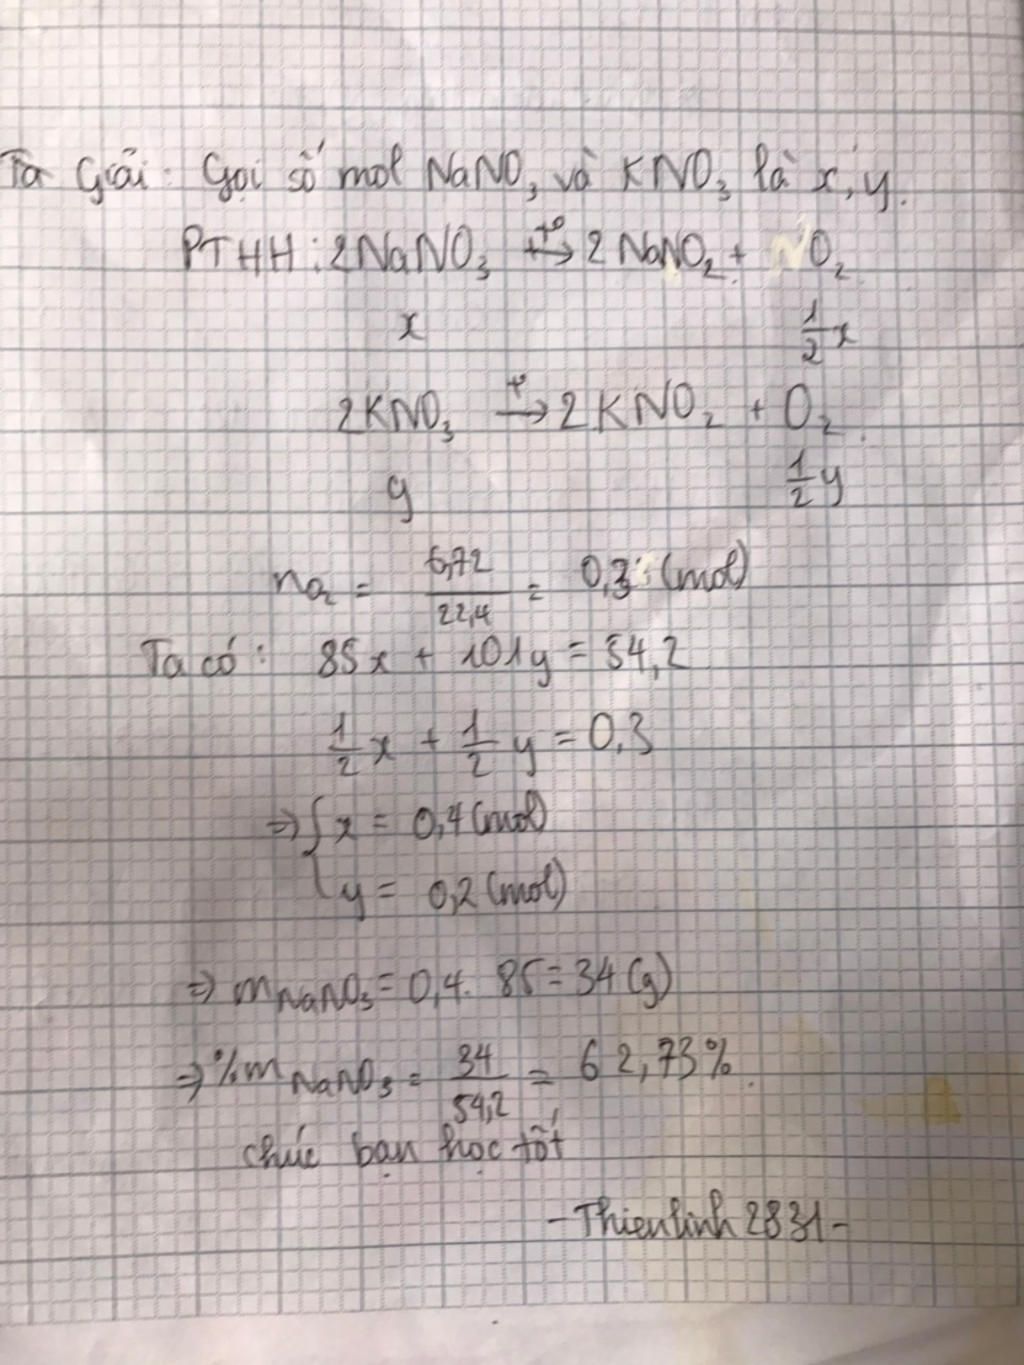 Ta Giải: Gọi số mol NaNO₃ và KNO₃ là x, y.
PTHH: 2NaNO₃ →(t°) 2NaNO₂ + NO₂
x ½x
2KNO₃ →(t°) 2KNO₂ + O₂
y ½y
nO₂ = 6,72/22,4 = 0,3 (mol)
Ta có: 85x + 101y = 54,2
½x + ½y = 0,3
⇒ { x = 0,4 (mol)
y = 0,2 (mol)
⇒ mNaNO₃ = 0,4 . 85 = 34 (g)
⇒ %mNaNO₃ = 34/54,2 = 62,73%.
chúc bạn học tốt
-Thienlinh2831-